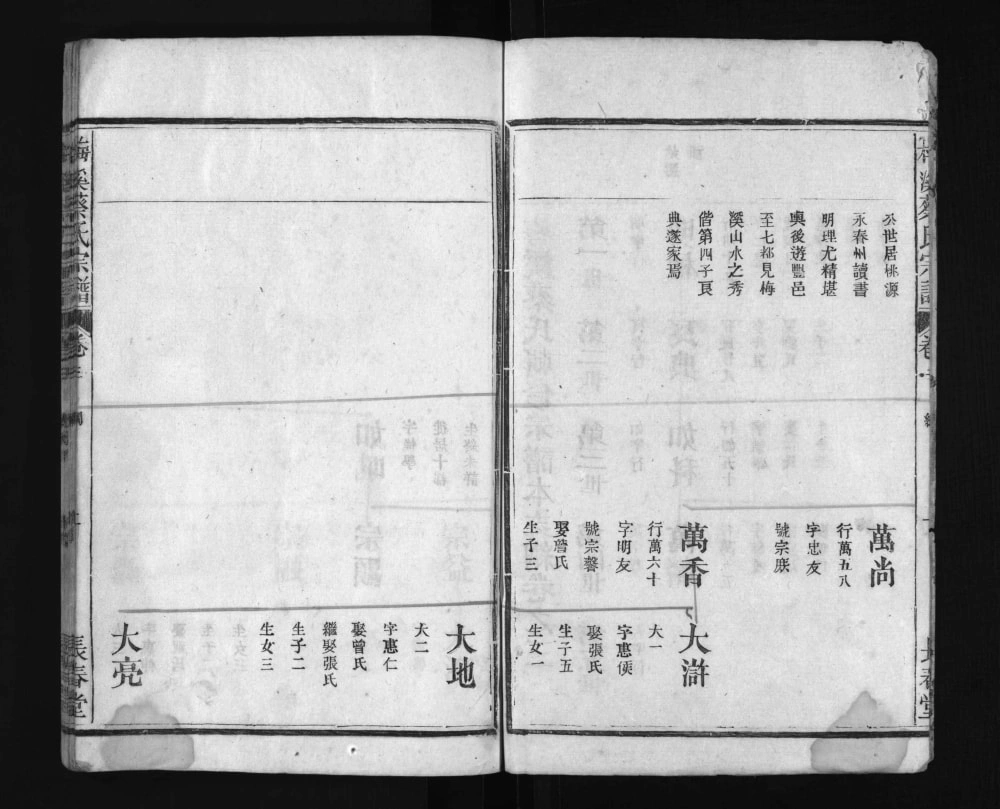 公世居桃源
永春州讀書
明理尤精堪
輿後遊豐邑
至七都見梅
溪山水之秀
偕第四子良
典遂家焉
萬尚
行萬五八
字忠友
號宗庻
萬香
行萬六十
字明友
號宗馨
娶詹氏
生子三
大滸
大一
字惠便
娶張氏
生子五
生女一
大地
大二
字惠仁
娶曾氏
繼娶張氏
生子二
生女三
大亮
梅溪蔡氏宗譜
卷
長春堂